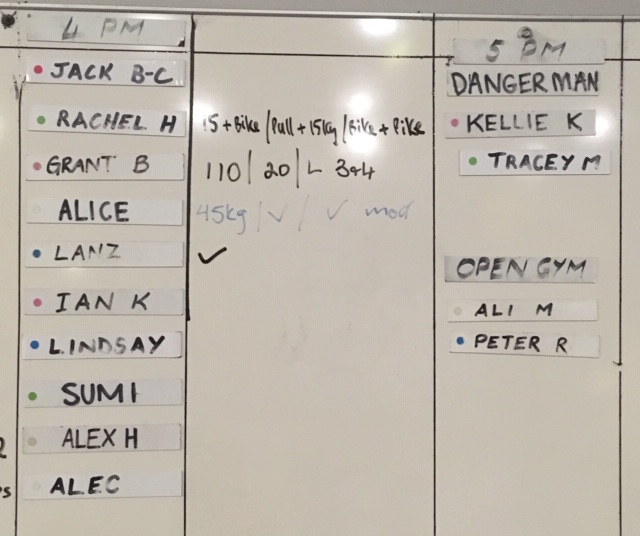 4 PM
JACK B-C
RACHEL H 15 + Bike / Pull + 15kg / Bike + Pike
GRANT B 110 / 20 / L 3+4
ALICE 45kg / ✓ / ✓ mod
LANZ ✓
IAN K
LINDSAY
SUMI
ALEX H
ALEC
5 PM
DANGERMAN
KELLIE K
TRACEY M
OPEN GYM
ALI M
PETER R